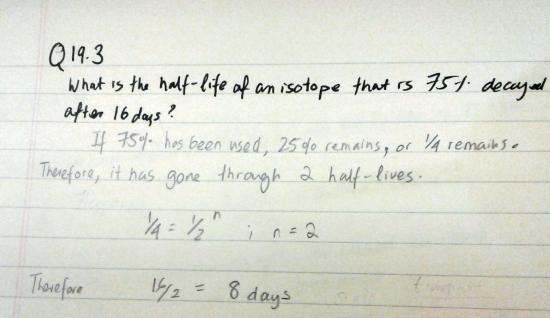 Q19.3
What is the half-life of an isotope that is 75% decayed
after 16 days?
If 75% has been used, 25% remains, or 1/4 remains.
Therefore, it has gone through 2 half-lives.
1/4 = 1/2ⁿ ; n = 2
Therefore 16/2 = 8 days